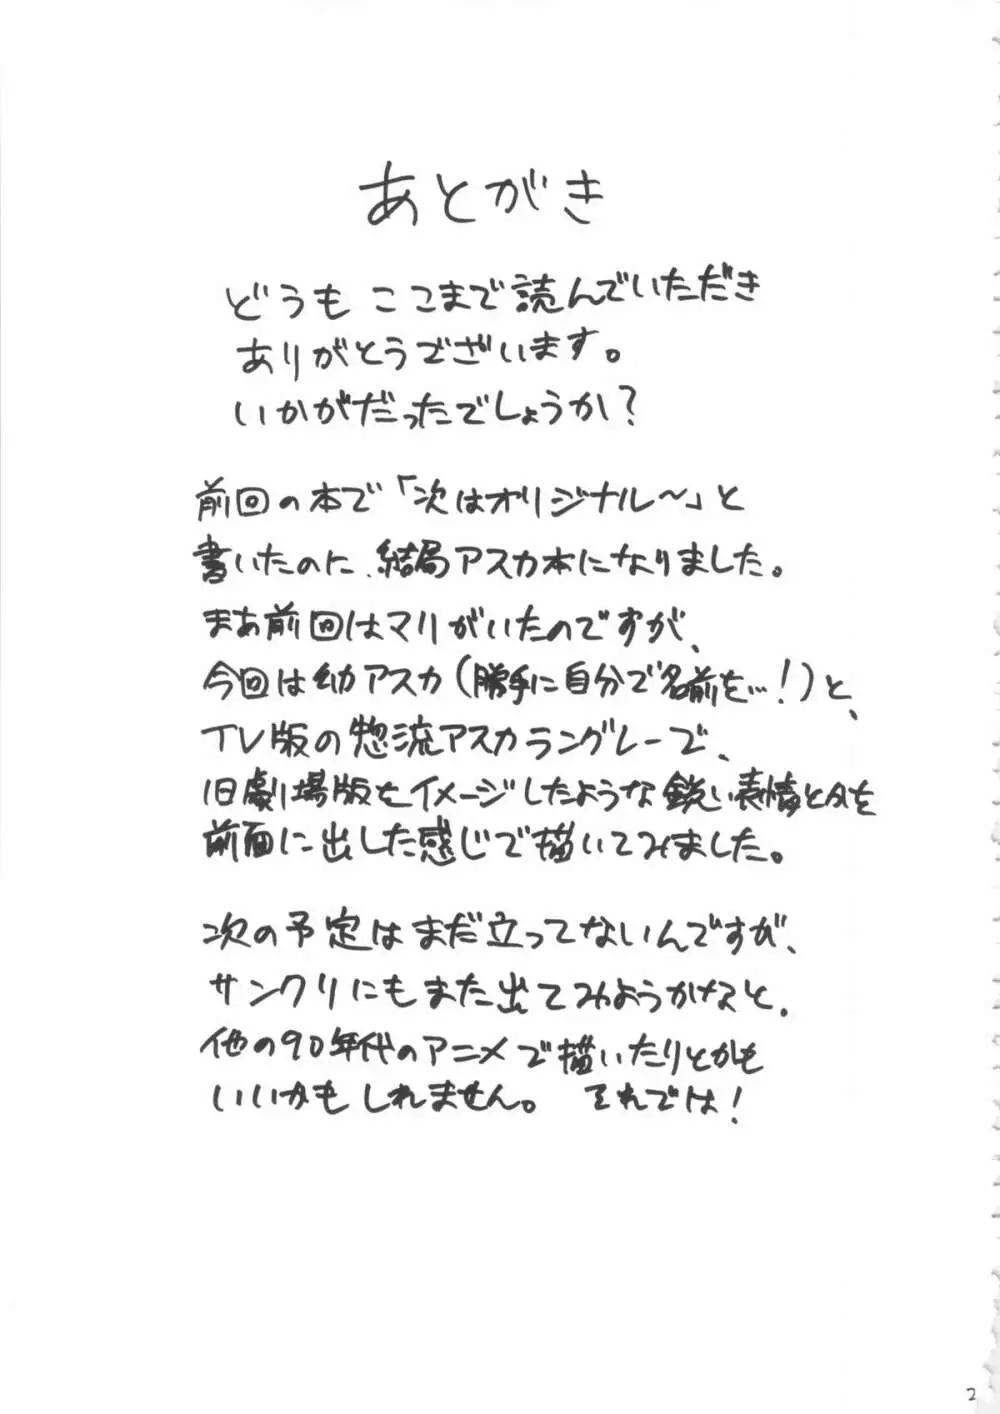 あとがき
どうも ここまで読んでいただき
ありがとうございます。
いかがだったでしょうか?
前回の本で「次はオリジナル～」と
書いたのに、結局アスカ本になりました。
まあ前回はマリがいたのですが、
今回は幼アスカ(勝手に自分で名前を…!)と、
TV版の惣流アスカラングレーで、
旧劇場版をイメージしたような鋭い表情とかを
前面に出した感じで描いてみました。
次の予定はまだ立ってないんですが、
サンクリにもまた出てみようかなと。
他の90年代のアニメで描いたりとかも
いいかもしれません。 それでは!
2